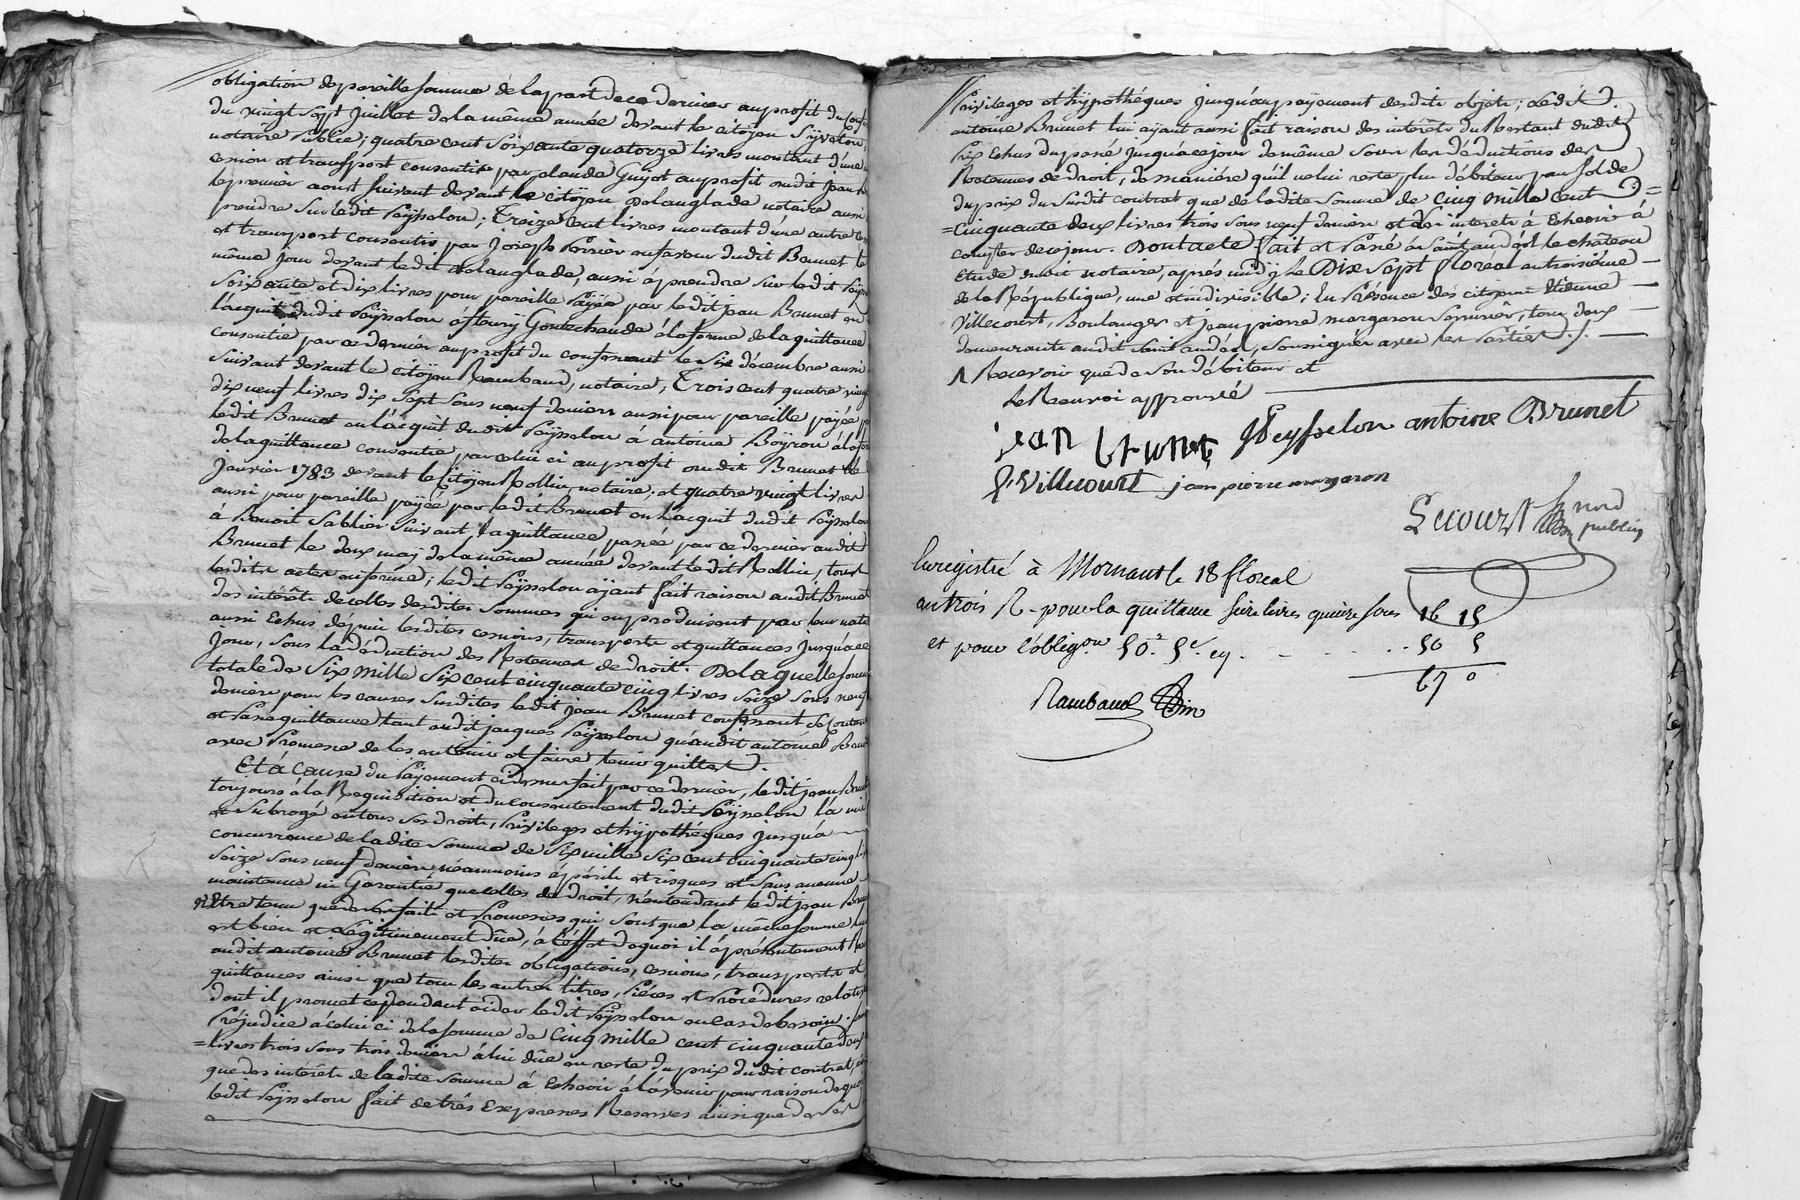 obligation de pareille somme de la part de ce dernier au profit du
du vingt sept juillet de la même année devant le citoyen Syveton,
notaire Public; quatre cent soixante quatorze livres montant d'une
cession et transport consentie par claude Guyot au profit dudit jean
le premier aoust suivant devant le citoyen Delanglade notaire aussi
prendre sur ledit Peÿsselon; Treize cent livres montant d'une autre
et transport consentis par Joseph Perrier en faveur dudit Brunet le
même jour devant ledit Delanglade, aussi à prendre sur ledit
soixante et dix livres pour pareille Paÿée par ledit jean Brunet en
l'acquit dudit Peÿsselon à fleury Gonechande à la forme de la quittance
consentie par ce dernier au profit du confessant le six décembre aussi
suivant devant le citoyen Rambaud, notaire; Trois cent quatre vingt
dix neuf livres dix sept sous neuf deniers aussi pour pareille paÿée
ledit Brunet en l'acquit dudit Peÿsselon à antoine Boÿron à la
de la quittance consentie par celui ci au profit dudit Brunet le
janvier 1783 devant le Citoyen Rollin notaire; et quatre vingt livres
aussi pour pareille paÿée par ledit Brunet en l'acquit dudit Peÿsselon
à Benoit Sablier suivant la quittance passée par ce dernier audit
Brunet le deux maÿ de la même année devant ledit Rollin, tous
lesdits actes en forme; ledit Peÿsselon aÿant fait raison audit Brunet
des intérêts de celles desdites sommes qui en produisent par leur nature
aussi Echus depuis lesdites cessions, transports et quittances jusqu'à ce
jour, sous la déduction des Retenues de droit. De laquelle somme
totale de Six mille Six cent cinquante cinq livres seize sous neuf
deniers pour les causes susdites ledit jean Brunet confessant se contente
et Passe quittance tant audit jacques Peÿsselon qu'audit antoine Brunet
avec Promesse de les en tenir et faire tenir quittes.
Et à Cause du Paÿement ci dessus fait par ce dernier, ledit jean Brunet
toujours à la Requisition et du consentement dudit Peÿsselon l'a mis
et subrogé en tous ses droits, Privileges et hÿpothéques jusqu'à
concurrance de la dite somme de Six mille Six cent cinquante cinq
seize sous neuf deniers, néanmoins à périls et risques et sans aucune
maintenue ni Garantie que celles de droit, n'entendant ledit jean Brunet
Etre tenu que de ses faits et Promesses qui sont que la même somme lui
est bien et Légitimement dûe, à l'éffet de quoi il a présentement
audit antoine Brunet lesdites obligations, cessions, transports et
quittances ainsi que tous les autres titres, Piéces et Procédures
dont il promet cependant aider ledit Peÿsselon en cas de besoin, sans
Préjudice à celui ci de la somme de Cinq mille cent cinquante deux
= livres trois sous trois deniers à lui dûe en reste du prix dudit contrat,
que des intérêts de ladite somme à Echeoir à l'avenir pour raison de quoi
ledit Peÿsselon fait de très Expresses Reserves ainsi que de ses
Privileges et hÿpothéques jusqu'au paÿement desdits objets; Ledit
antoine Brunet lui aÿant aussi fait raison des intérêts du Restant dudit
Prix Echus du passé jusqu'à ce jour de même sous les déductions des
Retenues de droit, de maniére qu'il ne lui reste plus débiteur pour solde
du prix du Susdit contrat que de ladite somme de Cinq mille cent =
= cinquante deux livres trois sous neuf deniers et des intérêts à Echeoir à
compter de ce jour. Dont acte fait et Passé à Saint andéol le château
Etude dudit notaire, après midÿ le Dix Sept floréal an troisiéme
de la République, une et indivisible; En Présence des citoyens Etienne
Villecourt, Boulanger et jean pierre margaron serrurier, tous deux
demeurants audit saint andéol, soussignés avec les Parties ./.
Λ Recevoir que de son débiteur et
Le Renvoi approuvé
jean brunet J Peysselon antoine Brunet
E. Villecourt jean pierre margaron
Lecourt
nore
public
Enregistré à Mornant le 18 floreal
an trois R. pour la quittance seize livres quinze sous 16 15
et pour l'obligon 50 5 50 5
67 0
Rambaud